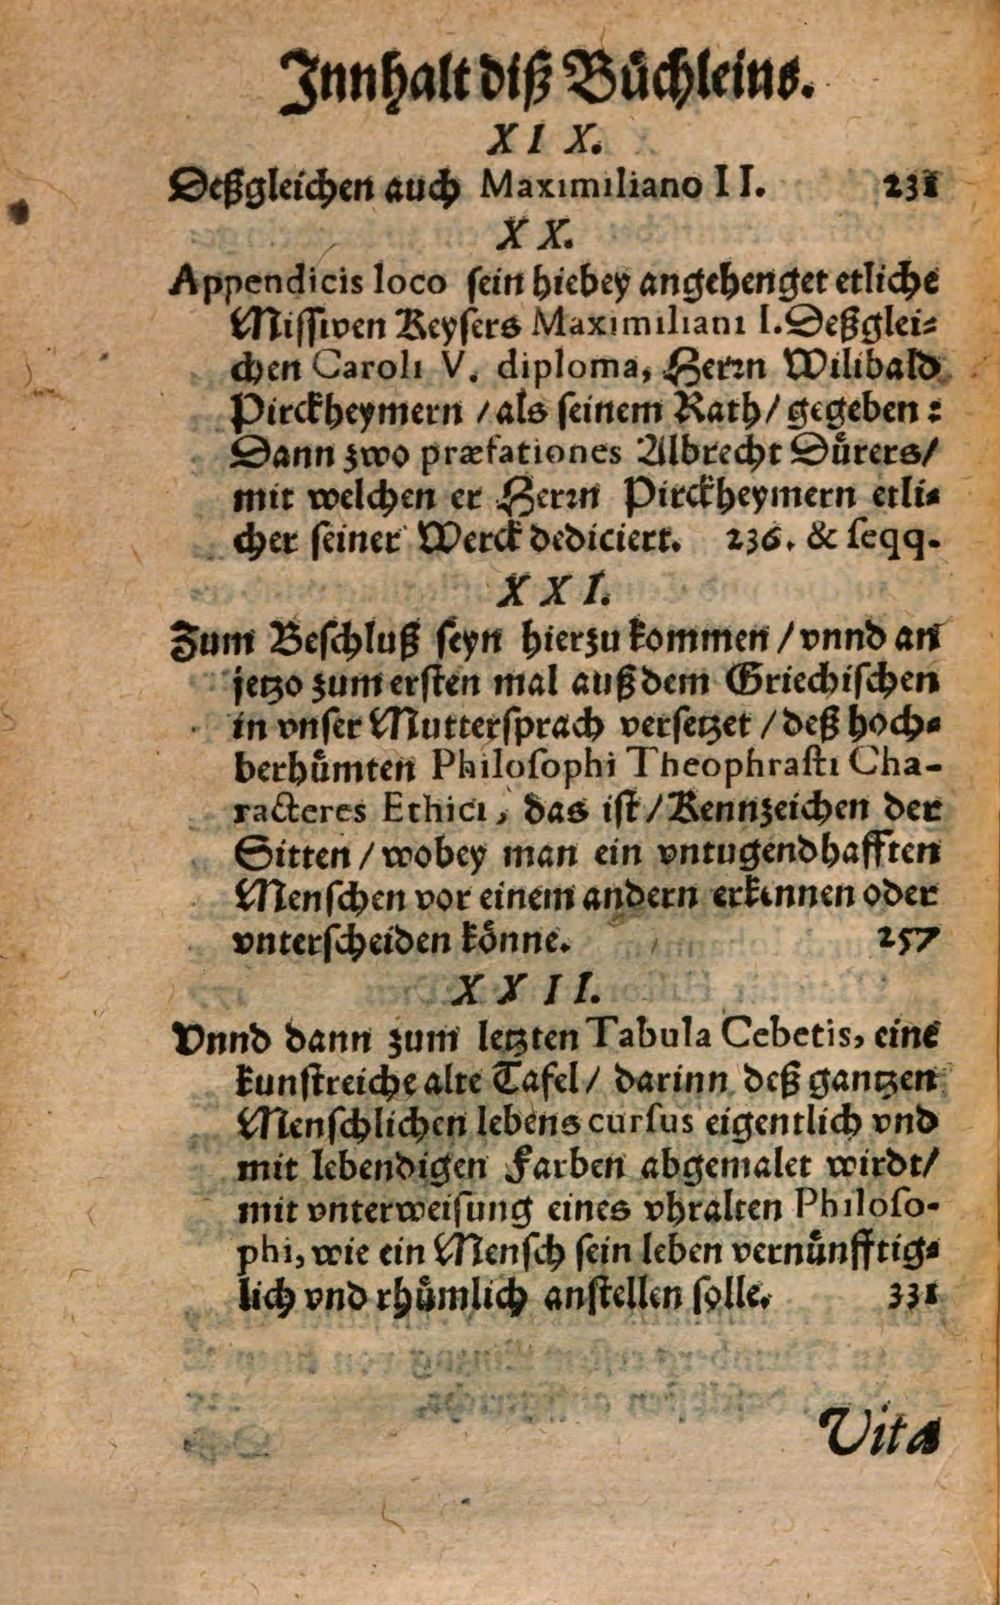 Innhalt diß Bůchleins.
XIX.
Deßgleichen auch Maximiliano II. 231
XX.
Appendicis loco sein hiebey angehenget etliche
Missiven Keysers Maximiliani I. Deßglei-
chen Caroli V. diploma, Herrn Wilibald
Pirckheymern / als seinem Rath / gegeben :
Dann zwo præfationes Albrecht Důrers /
mit welchen er Herrn Pirckheymern etli-
cher seiner Werck dediciert. 236. & seqq.
XXI.
Zum Beschluß seyn hierzu kommen / vnnd an
jetzo zum ersten mal auß dem Griechischen
in vnser Muttersprach versetzet / deß hoch-
berhůmten Philosophi Theophrasti Cha-
racteres Ethici, das ist / Kennzeichen der
Sitten / wobey man ein vntugendhafften
Menschen vor einem andern erkennen oder
vnterscheiden kônne. 257
XXII.
Vnnd dann zum letzten Tabula Cebetis, eine
kunstreiche alte Tafel / darinn deß gantzen
Menschlichen lebens cursus eigentlich vnd
mit lebendigen Farben abgemalet wirdt /
mit vnterweisung eines vhralten Philoso-
phi, wie ein Mensch sein leben vernůnfftig-
lich vnd rhůmlich anstellen solle. 331
Vita